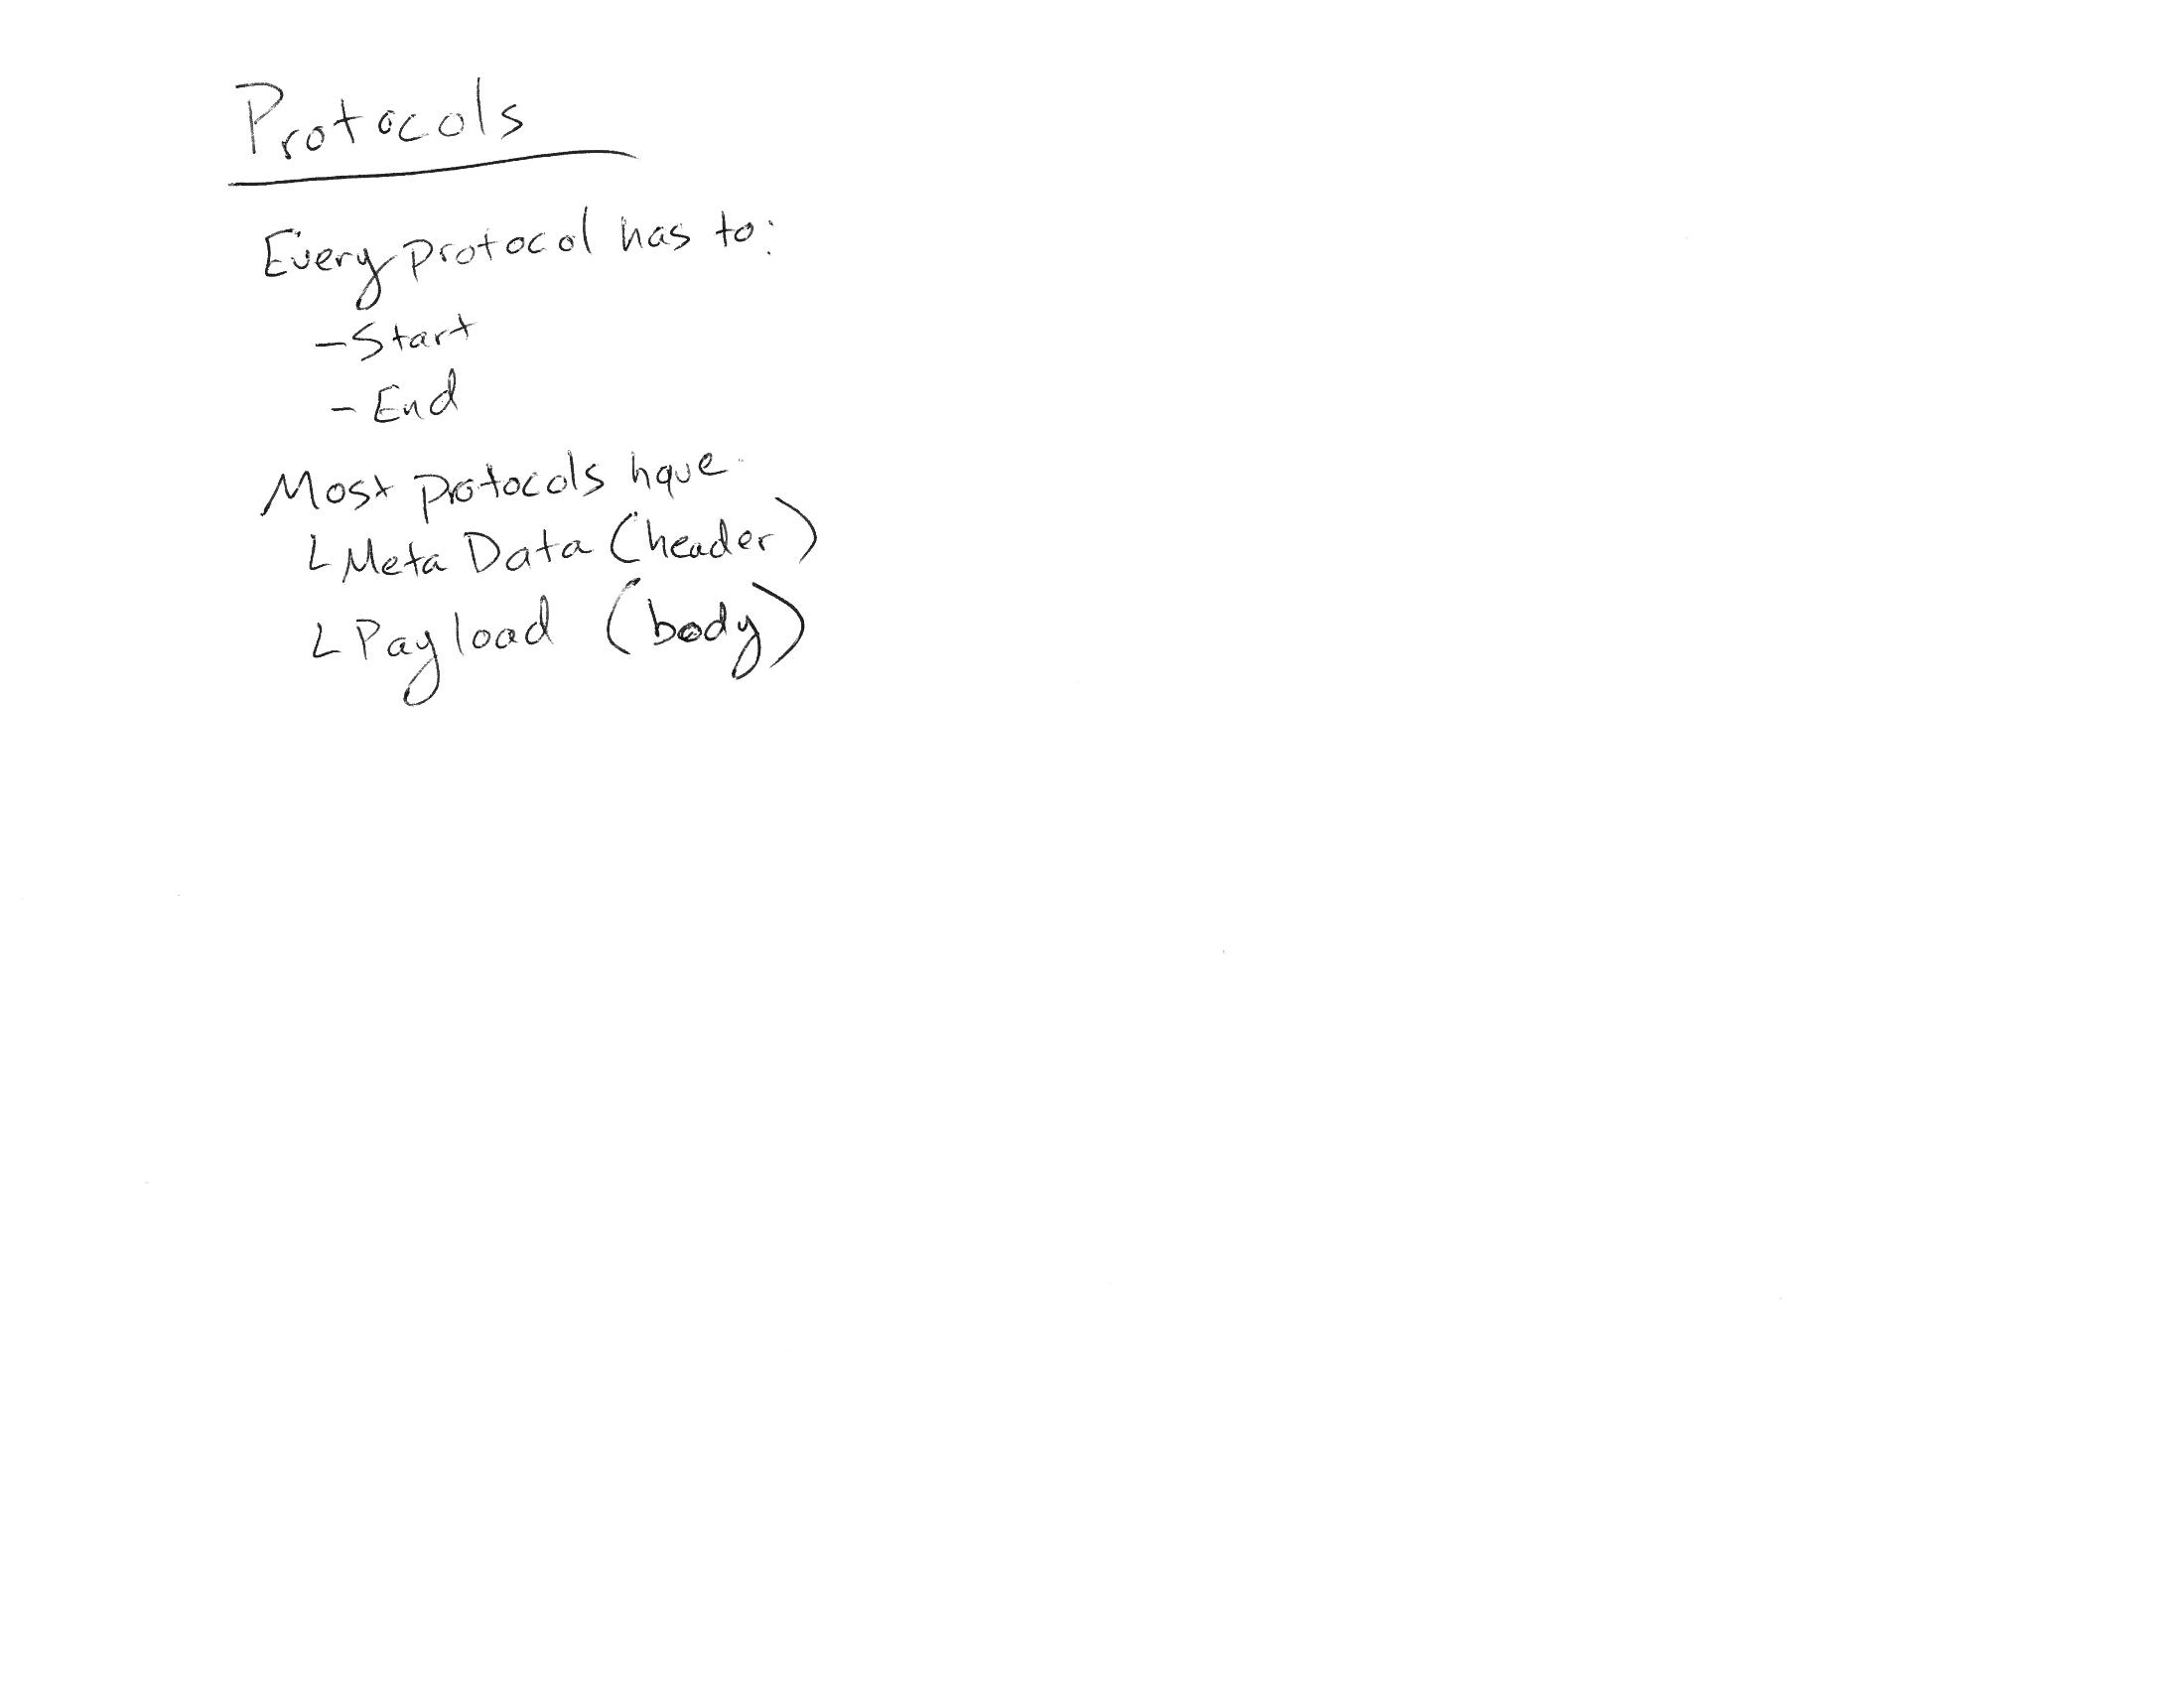 Protocols
Every protocol has to:
- Start
- End
Most protocols have
L Meta Data (header)
L Payload (body)